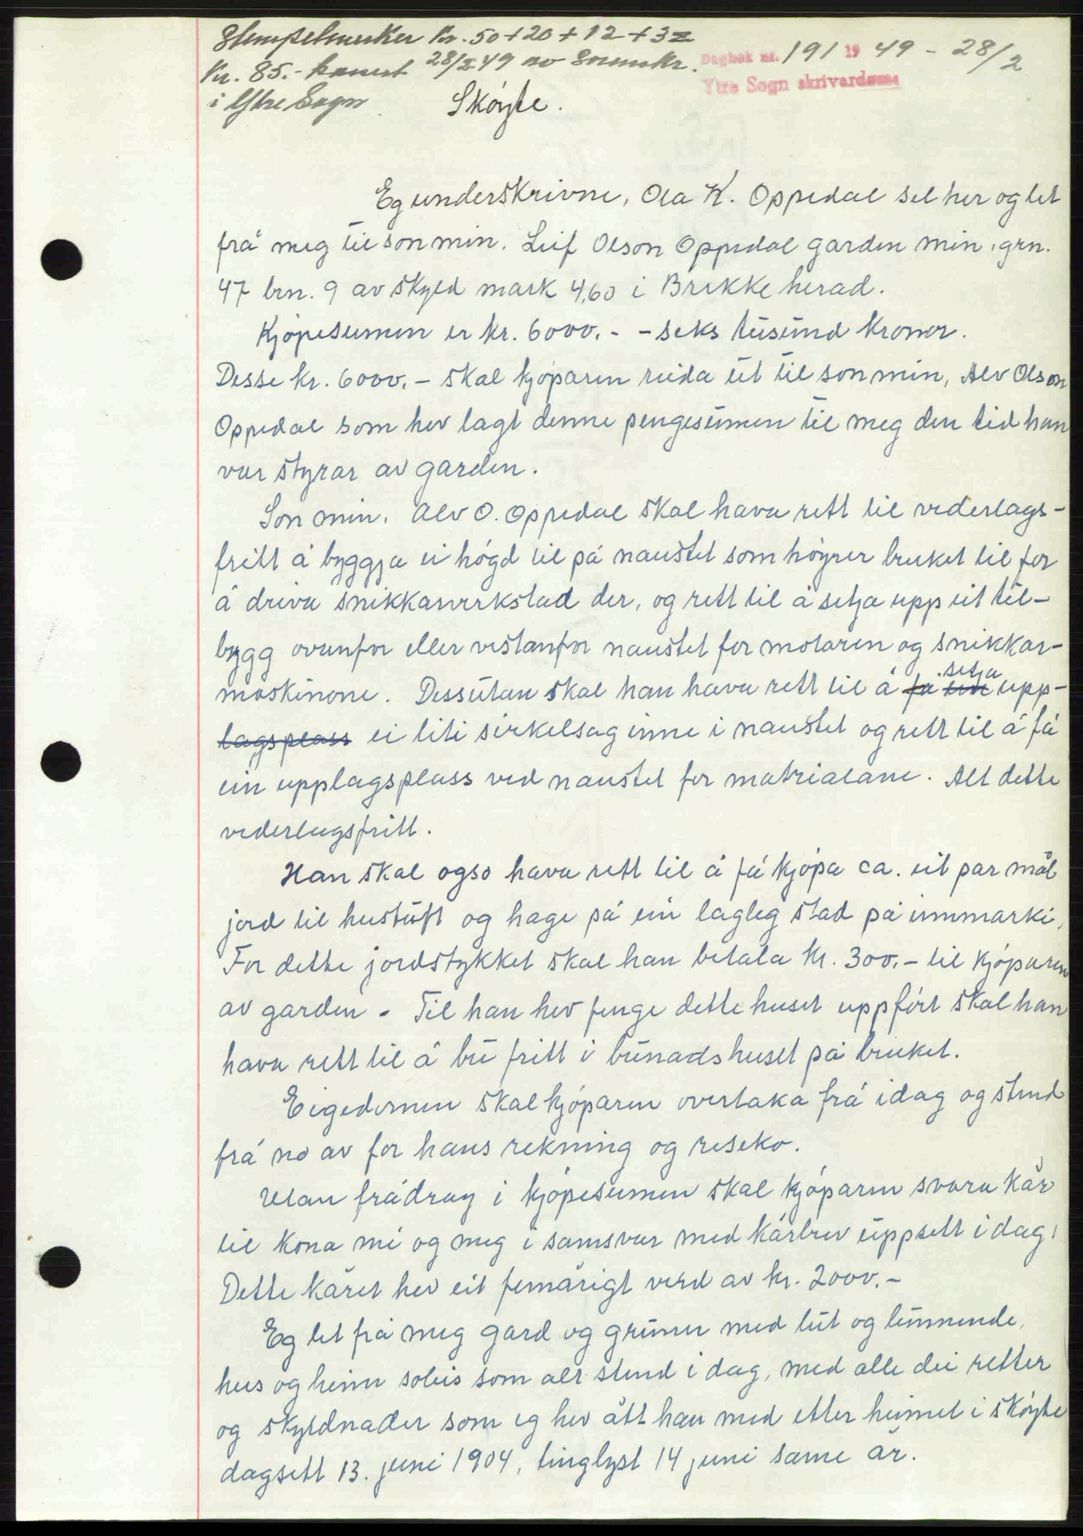 Stempelmerker kr. 50 + 20 + 12 + 3 =
Kr. 85.- kasert 28/2.49 av Sorenskr.
i Ytre Sogn
Dagbok nr. 191 19 49 - 28/2
Ytre Sogn skrivardøme
Skøyte.
Eg underskrivne, Ola K. Oppedal sel her og let
frå meg til son min, Leif Olson Oppedal garden min, grn.
47 brn. 9 av skyld mark 4,60 i Brekke herad.
Kjøpesummen er kr. 6000.- - seks tusund kronor.
Desse kr. 6000.- skal kjøparen reida ut til son min, Alv Olson
Oppedal som hev lagt denne pengesummen til meg den tid han
var styrar av garden.
Son min, Alv O. Oppedal skal hava rett til vederlags-
fritt å byggja ei høgd til på naustet som høyrer bruket til for
å driva snikkarverkstad der, og rett til å setja upp eit til-
bygg ovanfor eller vestanfor naustet for motoren og snikkar-
maskinone. Dessutan skal han hava rett til å få ein setja upp-
lagsplass ei liti sirkelsag inne i naustet og rett til å få
ein upplagsplass ved naustet for matrialane. Alt dette
vederlagsfritt.
Han skal ogso hava rett til å få kjøpa ca. eit par mål
jord til hustuft og hage på ein lagleg stad på innmarki.
For dette jordstykket skal han betala kr. 300.- til kjøparen
av garden - Til han hev fenge dette huset uppført skal han
hava rett til å bu fritt i bunadshuset på bruket.
Eigedomen skal kjøparen overtaka frå idag og stend
frå no av for hans rekning og reseko.
Utan frådrag i kjøpesummen skal kjøparen svara kår
til kona mi og meg i samsvar med kårbrev uppsett i dag.
Dette kåret hev eit femårigt verd av kr. 2000.-
Eg let frå meg gard og grunn med lut og lunnende,
hus og heim soleis som alt stend i dag, med alle dei retter
og skyldnader som eg hev ått han med etter heimel i skøyte
dagsett 13. juni 1904, tinglyst 14 juni same år.